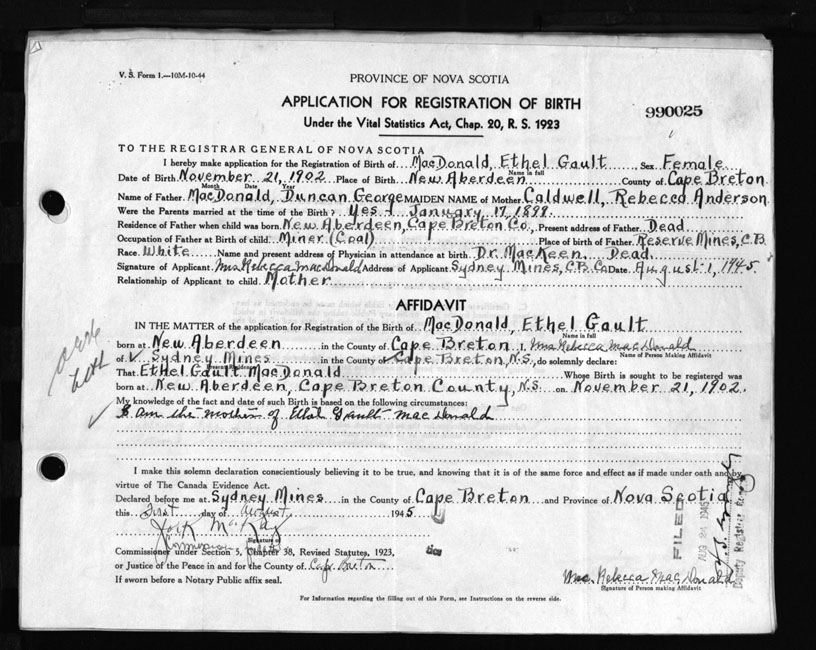 V. S. Form 1.—10M-10-44
PROVINCE OF NOVA SCOTIA
APPLICATION FOR REGISTRATION OF BIRTH
990025
Under the Vital Statistics Act, Chap. 20, R. S. 1923
TO THE REGISTRAR GENERAL OF NOVA SCOTIA
I hereby make application for the Registration of Birth of MacDonald, Ethel Gault Sex Female
Name in full
Date of Birth November 21, 1902 Place of Birth New Aberdeen County of Cape Breton
Month Date Year
Name of Father MacDonald, Duncan George MAIDEN NAME of Mother Caldwell, Rebecca Anderson
Were the Parents married at the time of the Birth? Yes + January 17, 1899.
Residence of Father when child was born New Aberdeen, Cape Breton Co. Present address of Father Dead
Occupation of Father at Birth of child Miner (Coal) Place of birth of Father Reserve Mines, C.B.
Race White Name and present address of Physician in attendance at birth Dr. MacKeen Dead
Signature of Applicant Mrs Rebecca MacDonald Address of Applicant Sydney Mines, C.B. Co. Date August 1, 1945
Relationship of Applicant to child Mother
AFFIDAVIT
IN THE MATTER of the application for Registration of the Birth of MacDonald, Ethel Gault
Name in full
born at New Aberdeen in the County of Cape Breton I, Mrs Rebecca MacDonald
Name of Person Making Affidavit
of Sydney Mines in the County of Cape Breton, N.S., do solemnly declare:
Present Residence
That Ethel Gault MacDonald Whose Birth is sought to be registered was
born at New Aberdeen, Cape Breton County, N.S. on November 21, 1902.
My knowledge of the fact and date of such Birth is based on the following circumstances:
I am the mother of Ethel Gault Mac Donald
I make this solemn declaration conscientiously believing it to be true, and knowing that it is of the same force and effect as if made under oath and by
virtue of The Canada Evidence Act.
Declared before me at Sydney Mines in the County of Cape Breton and Province of Nova Scotia
this First day of August 1945
Signature of
Commissioner under Section 5, Chapter 38, Revised Statutes, 1923,
or Justice of the Peace in and for the County of Cape Breton
If sworn before a Notary Public affix seal.
Mrs. Rebecca MacDonald
Signature of Person making Affidavit
For Information regarding the filling out of this Form, see Instructions on the reverse side.
FILED
AUG 1945
Deputy Registrar